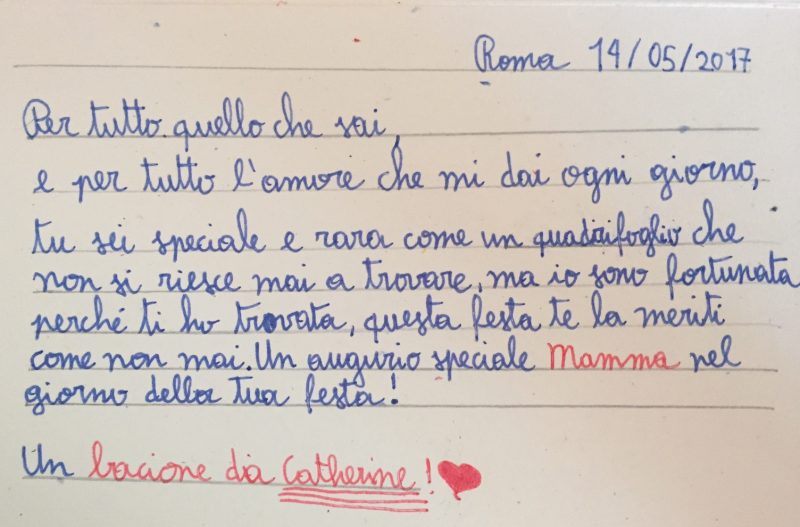 Roma 14/05/2017
Per tutto quello che sai,
e per tutto l'amore che mi dai ogni giorno,
tu sei speciale e rara come un quadrifoglio che
non si riesce mai a trovare, ma io sono fortunata
perché ti ho trovata, questa festa te la meriti
come non mai. Un augurio speciale Mamma nel
giorno della tua festa!
Un bacione da Catherine!